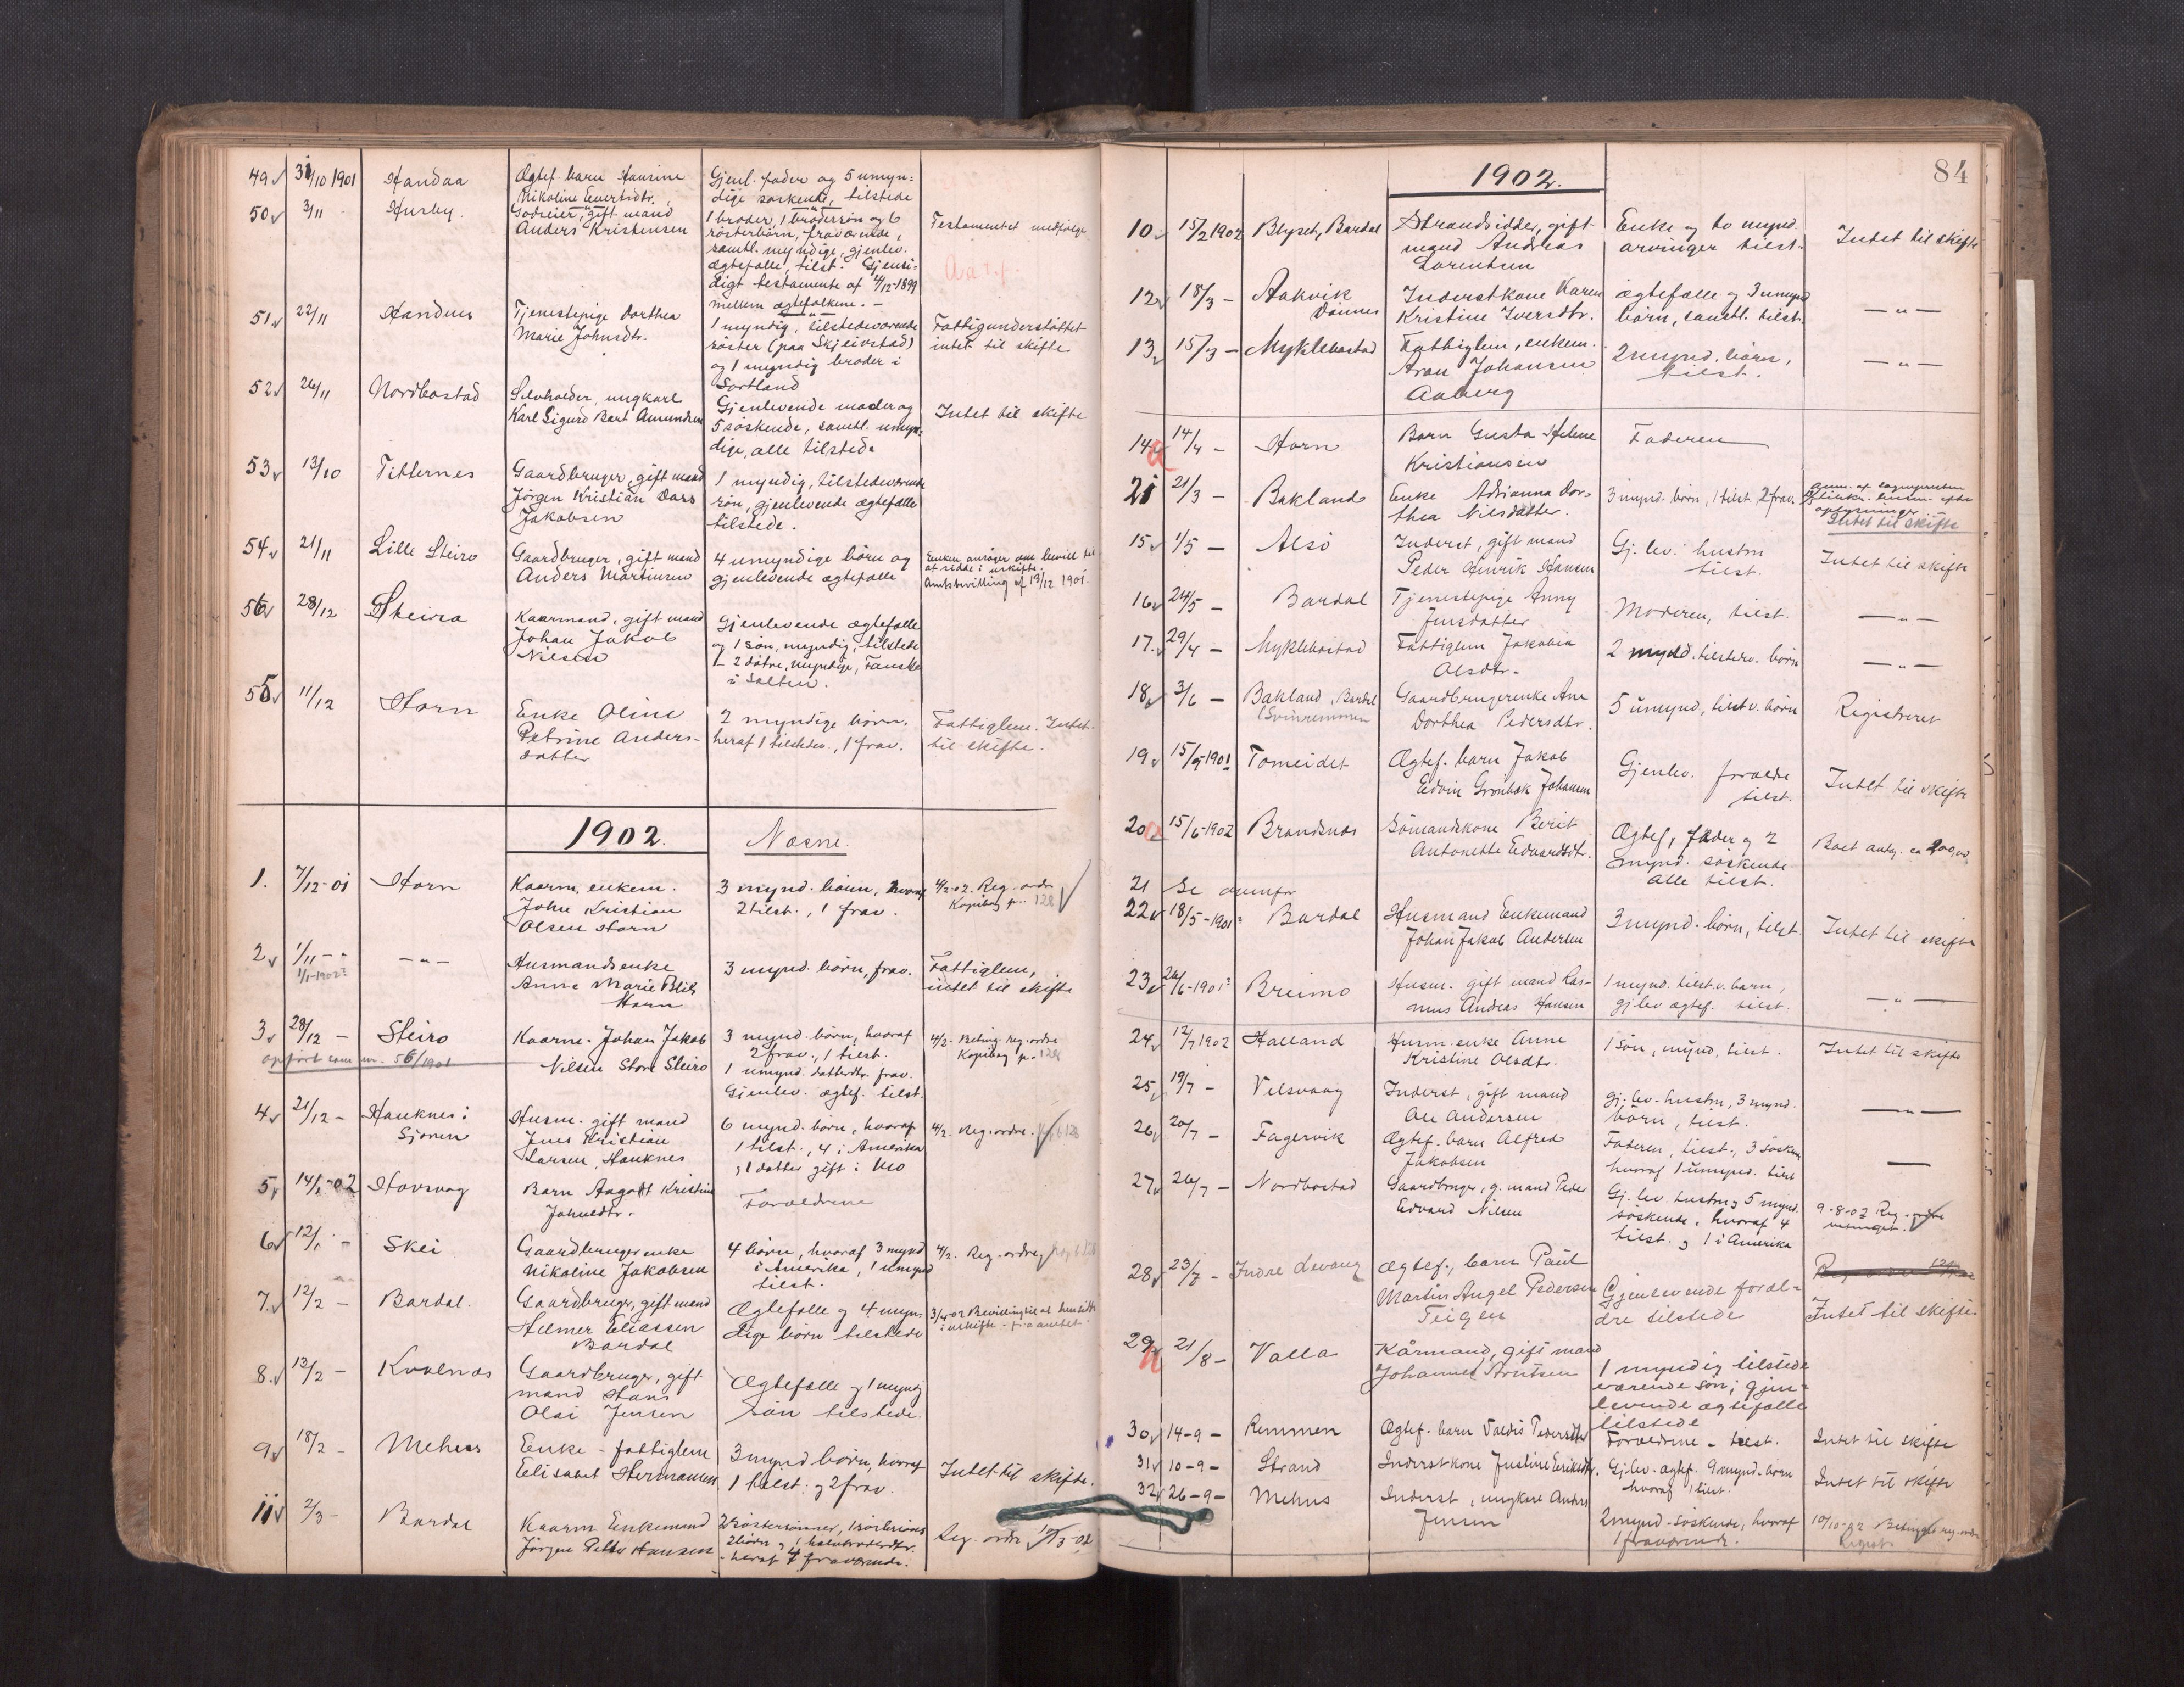 49 31/10 1901 Handaa Ægtef. barn Hansine Gjenl. fader og 5 umyn-
Nikoline Evertsdtr. dige søskende, tilstede
50 3/11 - Husby. Godseier, gift mand 1 broder, 1 brodersøn og 6 Testamentet medfølge
Anders Kristensen søsterbörn, fraværende,
samtl. myndige, gjenlev.
ægtefælle, tilst. Gjensi-
digt testamente af 4/12-1899
mellem ægtefolkene. -
51 22/11 Handnes Tjenestepige Dorthea 1 myndig, tilstedeværende Fattigunderstöttet
Marie Johnsdtr. søster (paa Skjeivstad) intet til skifte
og 1 myndig broder i
Sortland
52 26/11 Nordbostad Selvheder, ungkarl Gjenlevende moder og Intet til skifte
Karl Sigurd Bert Amundsen 5 söskende, samtl. umyn-
dige, alle tilstede
53 13/10 Titternes Gaardbruger, gift mand 1 myndig, tilstedeværende
Jörgen Kristian Dass søn, gjenlevende ægtefælle
Jakobsen tilstede.
54 21/11 Lille Steiro Gaardbruger, gift mand 4 umyndige börn og Enken ansöger om bevill. til
Anders Martinsen gjenlevende ægtefælle at sidde i uskifte.
Amtsbevilling af 13/12 1901.
56 28/12 Steiro Kaarmand, gift mand Gjenlevende ægtefælle
Johan Jakob og 1 sön, myndig, tilstede
Nilsen 2 dötre, myndige, Fauske
i Salten.
55 11/12 Horn Enke Oline 2 myndige börn, Fattiglem. Intet
Petrine Anders- heraf 1 tilstedev., 1 frav. til skifte.
datter
1902. Næsne.
1. 7/12-01 Horn Kaarm. enkem. 3 mynd. börn, hvoraf 4/2-02. Reg.-ordre
John Kristian 2 tilst., 1 frav. Kopibog p. 128
Olsen Horn
2 1/11 - - - " - Husmandsenke 3 mynd. börn, frav. Fattiglem,
1/1-1902? Anne Marie Blix intet til skifte
Horn
3 28/12 - Steiro Kaarm. Johan Jakob 3 mynd. börn, hvoraf 4/2. Beting. reg.-ordre
opfört som nr. 56/1901 Nilsen Store Steiro 2 frav., 1 tilst. Kopibog p. 128
1 umynd. datterdtr. frav.
Gjenlev. ægtef. tilst.
4 21/12 - Hauknes i Husm. gift mand 6 mynd. börn, hvoraf 4/2. Reg.-ordre. 128
Sjonen Jens Kristian 1 tilst., 4 i Amerika
Larsen, Hauknes og 1 datter gift i Mo
5 14/1-02 Hovsvag Barn Aagot Kristine Forældrene
Johnsdtr.
6 12/1 - Skei Gaardbrugerenke 4 börn, hvoraf 3 mynd 4/2. Reg.-ordre 128
Nikoline Jakobsen i Amerika, 1 umynd
tilst.
7 12/2 - Bardal. Gaardbruger, gift mand Ægtefælle og 4 myn- 3/4-02 Bevilling til at hensidde
Helmer Eliassen dige börn tilstede i uskifte fra amtet.
Bardal
8. 13/2 - Kvalnæs Gaardbruger, gift Ægtefælle og 1 myndig
mand Hans sön tilstede.
Olai Jensen
9 18/2 - Mehus Enke - fattiglem 3 mynd börn, hvoraf Intet til skifte.
Elisabet Hermansen. 1 tilst. og 2 frav.
11 2/3 - Bardal Kaarm. Enkemand 2 söstersönner,
Jörgen Peder Hansen Reg. ordre 17/3-02
heraf 4 fraværende.
84
1902.
10 15/2 1902 Blyset, Bardal Strandsidder, gift Enke og to mynd. Intet til skifte
mand Andreas arvinger tilst.
Lorentsen
12 18/3 - Aakvik Inderstkone Karen ægtefælle og 3 umynd - " -
Dönnes Kristine Iversdtr. börn, samtl. tilst.
13 15/3 - Myklebostad Fattiglem, enkem. 2 mynd. börn, - " -
Aron Johansen tilst.
Aaberg
14 14/4 - Horn Barn Gusta Helene Faderen
Kristiansen
21 21/3 - Bakland Enke Adrianna Dor- 3 mynd. börn, 1 tilst. 2 frav.
thea Nilsdatter oplysninger
Intet til skifte
15 1/5 - Alsö Inderst, gift mand Gj. lev. hustru Intet til skifte
Peder Henrik Hansen tilst.
16 24/5 - Bardal Tjenestepige Anny Moderen, tilst. - " -
Jensdatter
17. 29/4 - Myklebostad Fattiglem Jakobia 2 mynd. tilstedev. börn - " -
Olsdtr.
18 3/6 - Bakland, Bardal Gaardbrugerenke Ane 5 umynd, tilst.v. börn Registreret
(Svinremmen Dorthea Pedersdtr.
19 15/9-1901 Tomeidet Ægtef. barn Jakob Gjenlev. forældre Intet til skifte
Edvin Grönbæk Johansen tilst.
20 15/6-1902 Brandsnæs Sömandskone Berit Ægtef, fader og 2 Boet antg. ca 200,00
Antonette Edvardsdtr. mynd. söskende
alle tilst.
21 Se ovenfor
22 18/5-1901? Bardal Husmand Enkemand 3 mynd. börn, tilst. Intet til skifte
Johan Jakob Andersen
23 26/6-1901? Breimo Husm. gift mand Ras- 1 mynd. tilst.v. barn, - " -
mus Andreas Hansen gjlev ægtef. tilst.
24 12/7 1902 Halland Husm. enke Anne 1 sön, mynd, tilst. Intet til skifte
Kristine Olsdtr.
25 19/7 - Velsvaag Inderst, gift mand Gj. lev. hustru, 3 mynd. - " -
Ole Andersen börn, tilst.
26 20/7 - Fagervik Ægtef. barn Alfred Faderen, tilst., 3 sösken -
Jakobsen hvoraf 1 umynd. tilst
27 26/7 - Nordbostad Gaardbruger, g. mand Peder Gj. lev. hustru og 5 mynd. 9-8-02 Reg.-ordre
Edvard Nilsen söskende, hvoraf 4 betinget.
tilst. og 1 i Amerika
28 23/7 - Indre Levang Ægtef., barn Paul
Martin Angel Pedersen Gjenlevende foræl-
Teigen dre tilstede Intet til skifte
29 21/8 - Valla Kårmand, gift mand 1 myndig tilstede
Johannes Arntsen værende sön; gjen-
levende ægtefælle
tilstede
30 14-9- Remmen Ægtef. barn Valdis Pedersdtr Forældrene - tilst. Intet til skifte
31 10-9- Strand Inderstkone Justine Eriksdtr. Gjlev. ægtef. 9 mynd. börn Intet til skifte
hvoraf 1 tilst.
32 26-9- Mehus Inderst, ungkarl Anders 2 mynd. söskende, hvoraf 10/10-02 Betinget reg.-ordre
Jensen 1 fraværende.